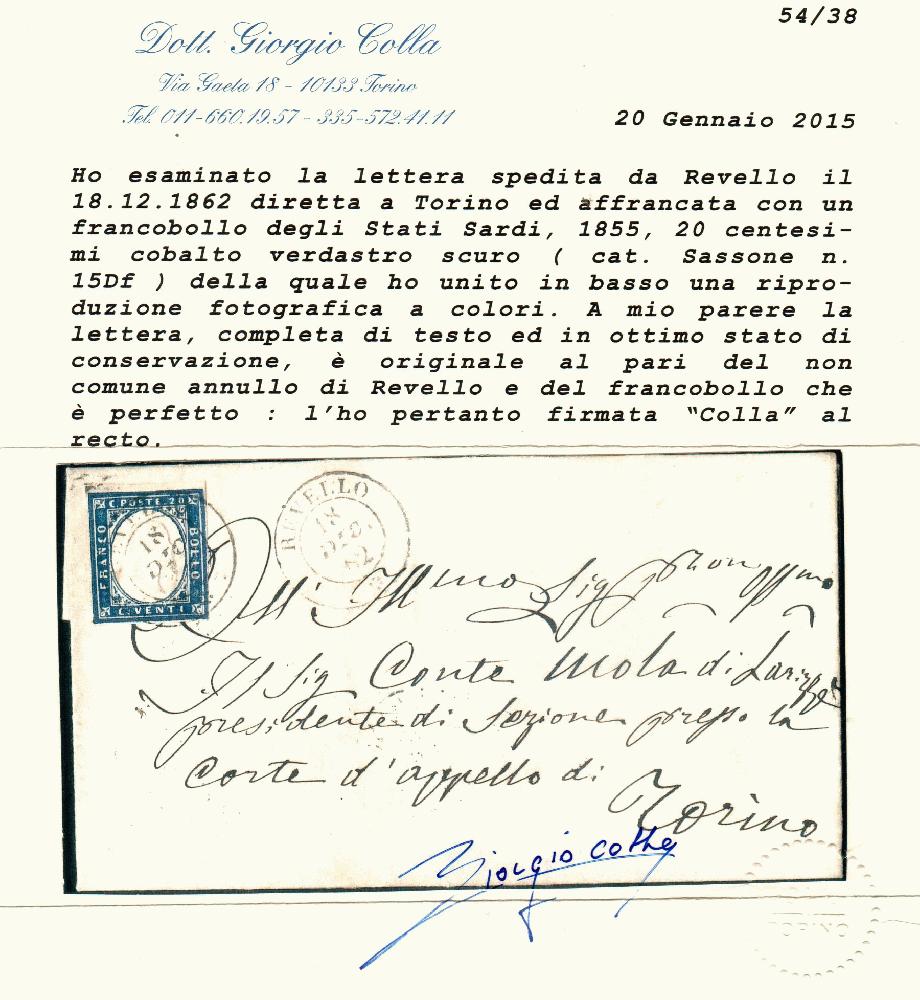 54/38
Dott. Giorgio Colla
Via Gaeta 18 - 10133 Torino
Tel. 011-660.19.57 - 335-572.41.11
20 Gennaio 2015
Ho esaminato la lettera spedita da Revello il
18.12.1862 diretta a Torino ed affrancata con un
francobollo degli Stati Sardi, 1855, 20 centesi-
mi cobalto verdastro scuro ( cat. Sassone n.
15Df ) della quale ho unito in basso una ripro-
duzione fotografica a colori. A mio parere la
lettera, completa di testo ed in ottimo stato di
conservazione, è originale al pari del non
comune annullo di Revello e del francobollo che
è perfetto : l'ho pertanto firmata "Colla" al
recto.
C. POSTE. 20
FRANCO
BOLLO
C. VENTI
18
DIC
REVELLO
18
DIC
62
All' Illmo Sig
Il Sig Conte Mola di
presidente di Sezione presso la
Corte d'appello di
Torino
Giorgio Colla
TORINO